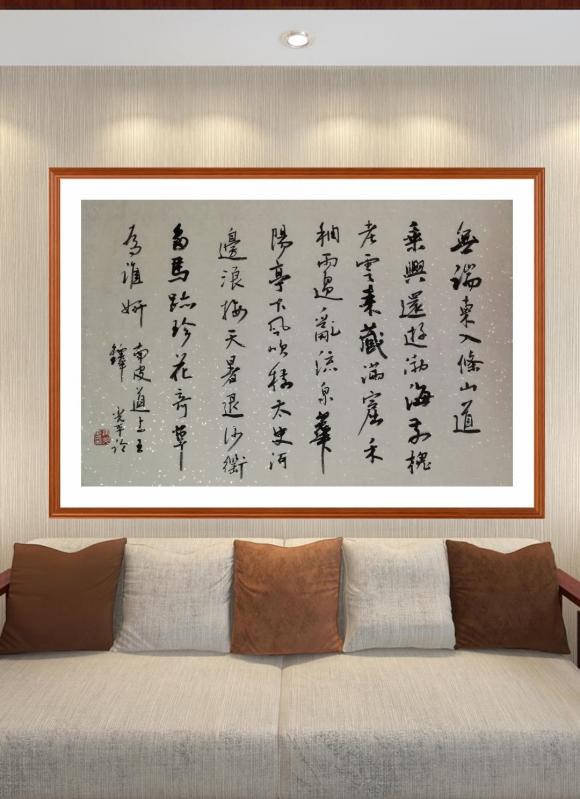 無端東入條山道
乘興還遊渤海前槐
老雲來藏滿窟禾
秞雨過亂流泉華
陽亭下風吹積太史河
邊浪接天暑退沙衢
多馬跡珍花奇草
為誰妍 南皮道上王
鐸